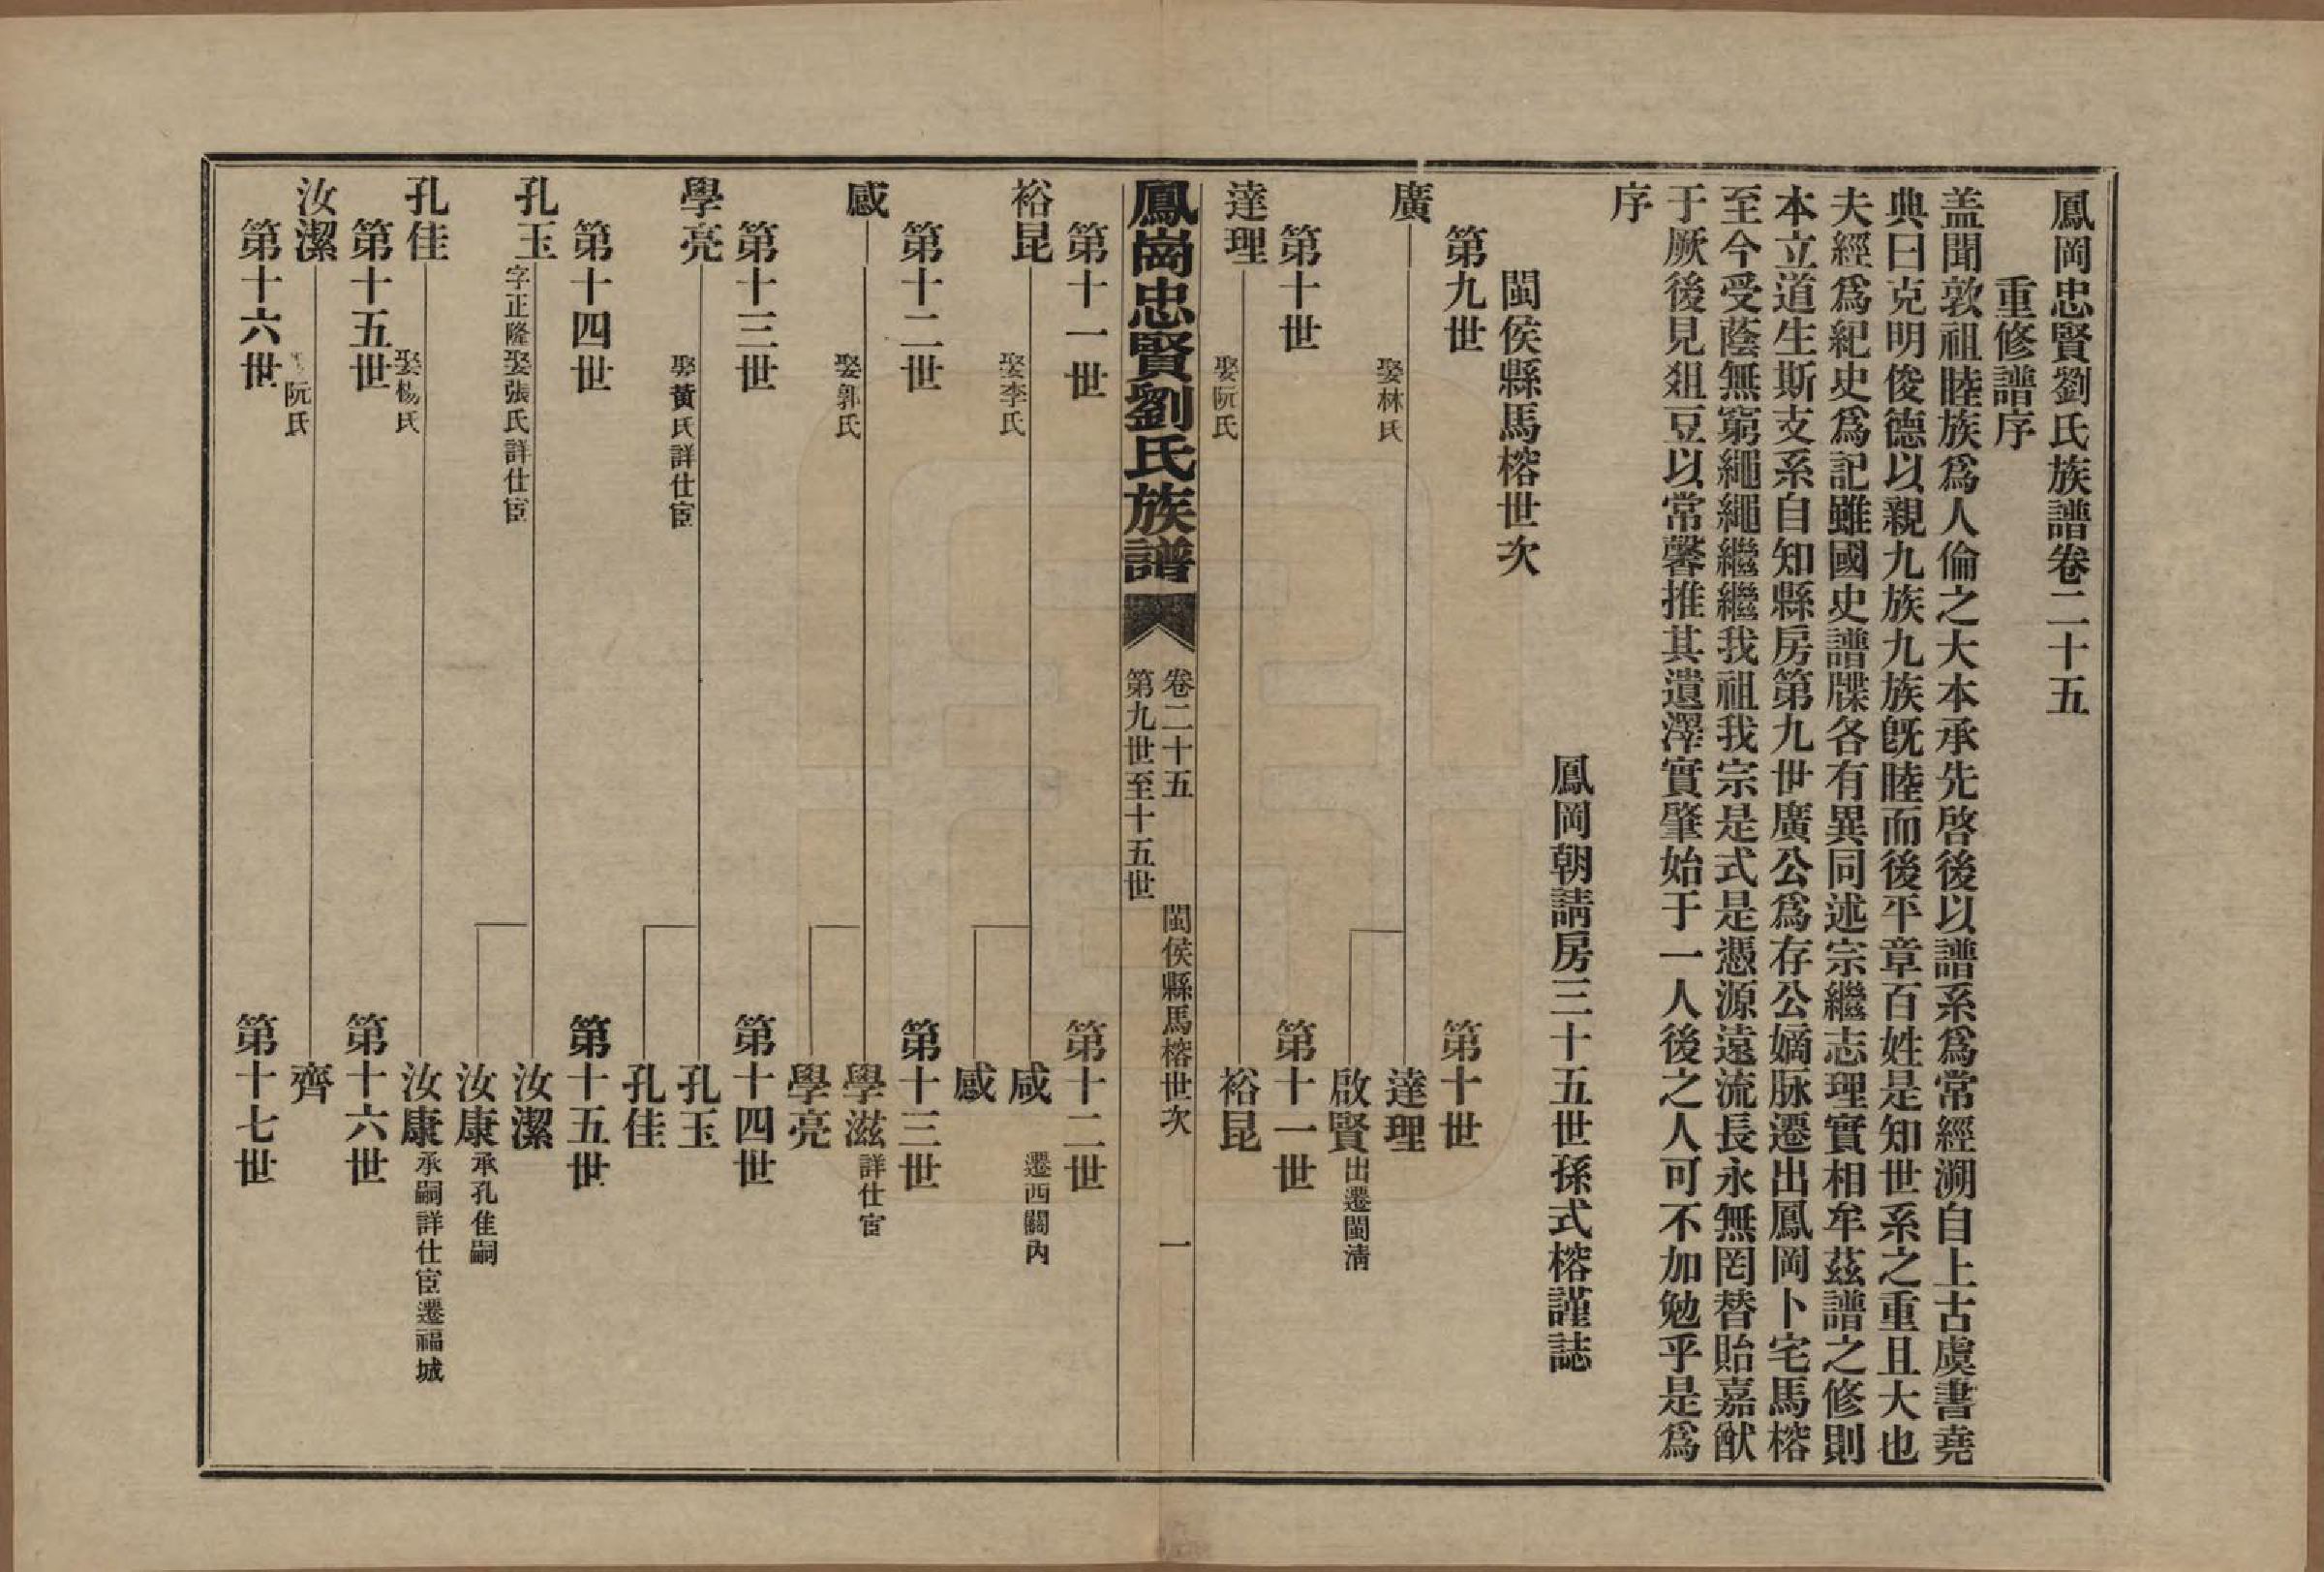 鳳岡忠賢劉氏族譜卷二十五
重修譜序
盖聞敦祖睦族爲人倫之大本承先啓後以譜系爲常經溯自上古虞書堯
典曰克明俊德以親九族九族旣睦而後平章百姓是知世系之重且大也
夫經爲紀史爲記雖國史譜牒各有異同述宗繼志理實相牟茲譜之修則
本立道生斯支系自知縣房第九世廣公爲存公嫡脉遷出鳳岡卜宅馬榕
至今受蔭無窮繩繩繼繼我祖我宗是式是憑源遠流長永無罔替貽嘉猷
于厥後見爼豆以常馨推其遺澤實肇始于一人後之人可不加勉乎是爲
序
鳳岡朝請房三十五世孫式榕謹誌
閩侯縣馬榕世次
第九世 第十世
廣 娶林氏 達理
啟賢 出遷閩清
第十世 第十一世
達理 娶阮氏 裕昆
鳳崗忠賢劉氏族譜
卷二十五 閩侯縣馬榕世次 一
第九世至十五世
第十一世 第十二世
裕昆 娶李氏 咸 遷西關內
感
第十二世 第十三世
感 娶郭氏 學滋 詳仕宦
學亮
第十三世 第十四世
學亮 娶黃氏詳仕宦 孔玉
孔佳
第十四世 第十五世
孔玉 字正隆娶張氏詳仕宦 汝潔
汝康 承孔隹嗣
孔佳 娶楊氏 汝康 承嗣詳仕宦遷福城
第十五世 第十六世
汝潔 阮氏 齊
第十六世 第十七世